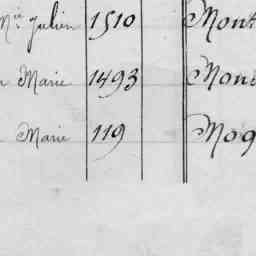 Mie Julien 1510 Mont
Marie 1493 Mon
Marie 119 Mog